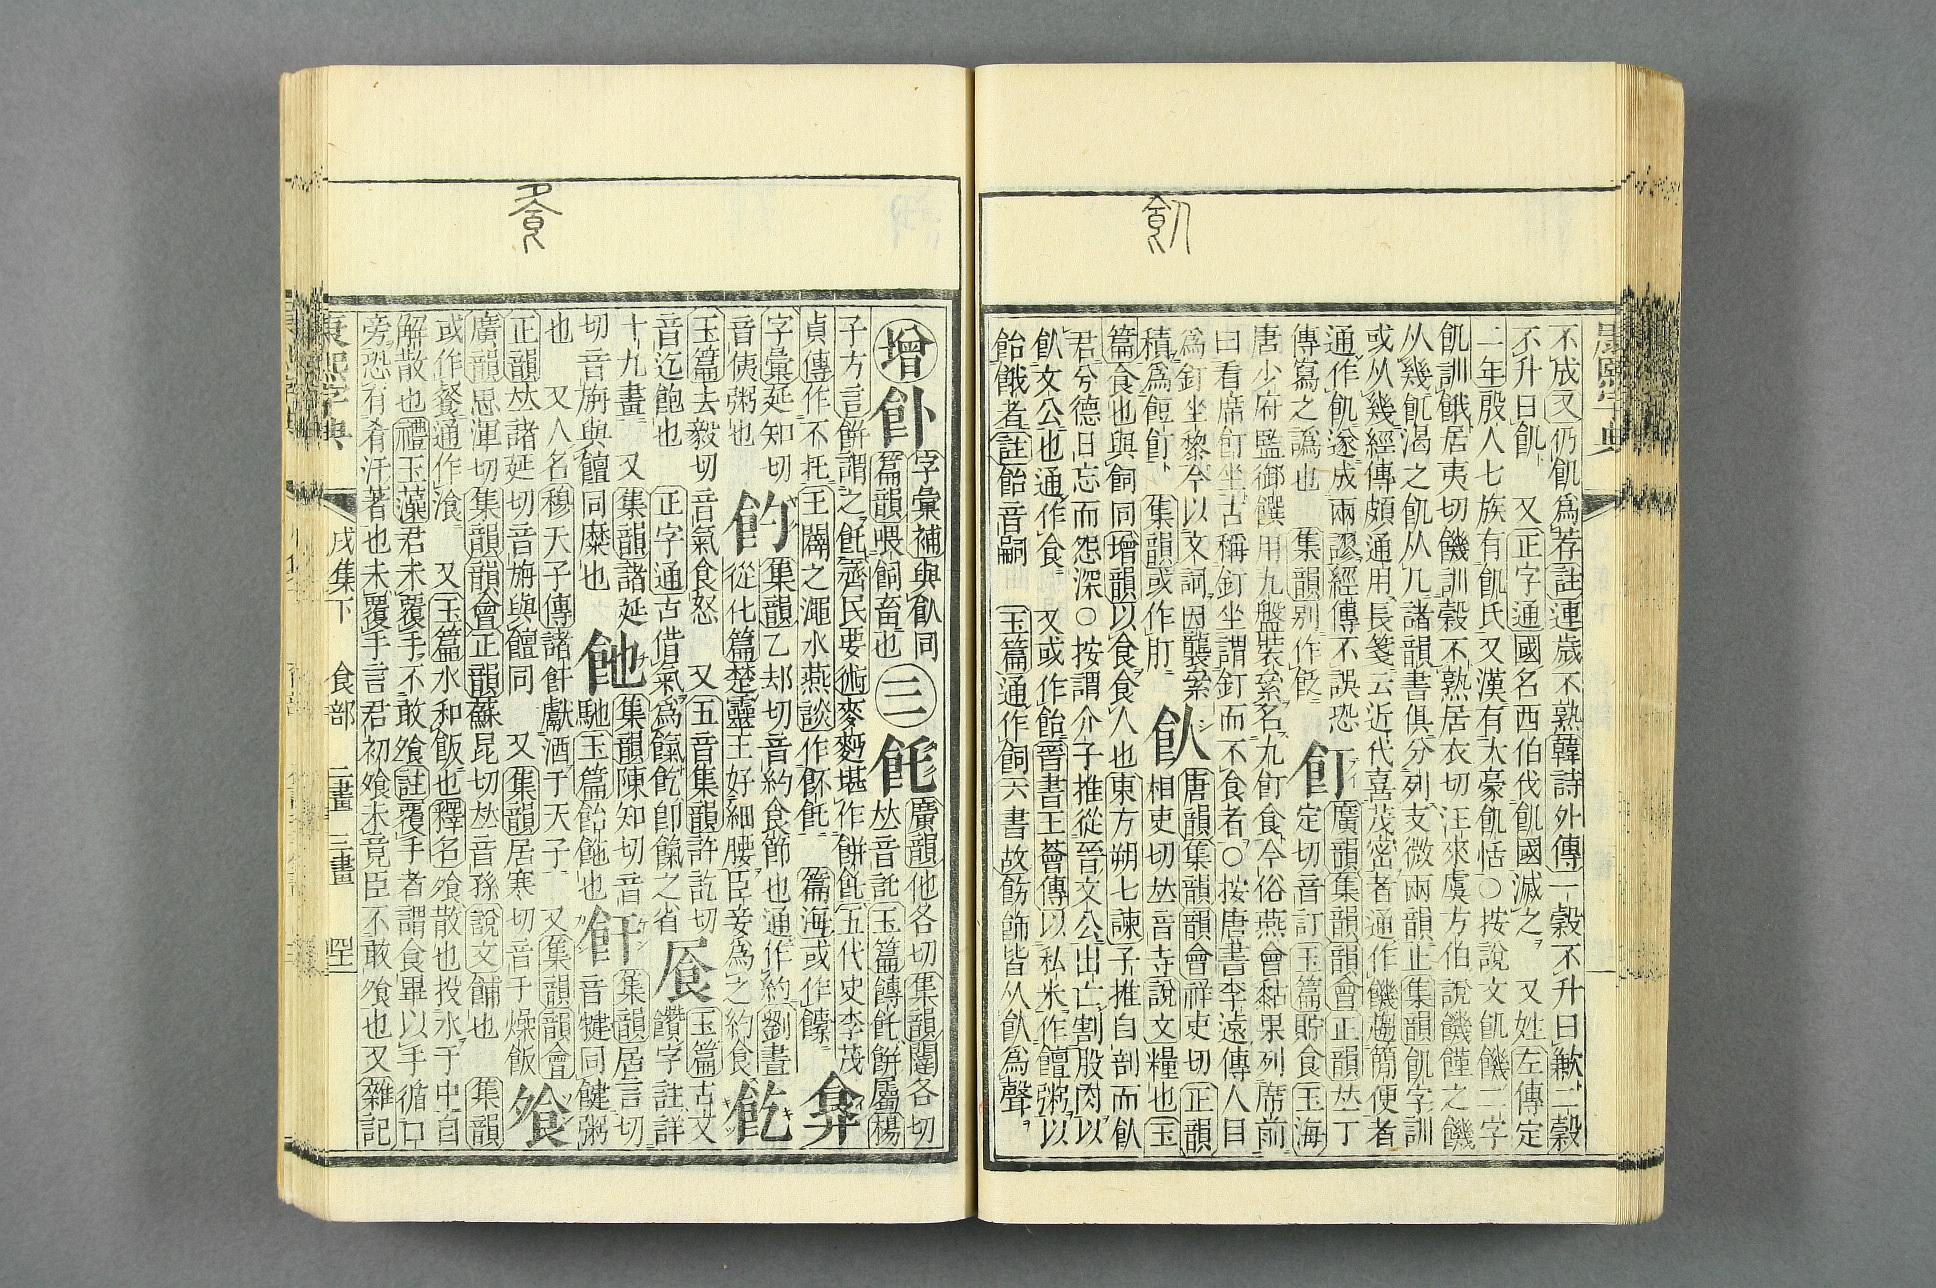 飢
不成又仍飢爲荐註連歲不熟韓詩外傳一穀不升曰歉二穀
不升曰飢 又正字通國名西伯伐飢國滅之 又姓左傳定
二年殷人七族有飢氏又漢有大豪飢恬○按說文飢饑二字
飢訓餓居夷切饑訓穀不熟居衣切汪來虞方伯說饑饉之饑
从幾飢渴之飢从几諸韻書俱分列支微兩韻止集韻飢字訓
或从幾經傳頗通用長箋云近代喜茂密者通作饑趨簡便者
通作飢遂成兩謬經傳不誤恐
傳寫之譌也 集韻别作
飣
廣韻集韻韻會正韻𠀤丁
定切音訂玉篇貯食玉海
唐少府監御饌用九盤裝纍名九飣食今俗燕會黏果列席前
曰看席飣坐古稱釘坐謂釘而不食者○按唐書李遠傳人目
爲釘坐黎今以文詞因襲纍
積爲餖飣 集韻或作
飤
唐韻集韻韻會祥吏切正韻
相吏切𠀤音寺說文糧也玉
篇食也與飼同增韻以食食人也東方朔七諫子推自剖而飤
君兮德日忘而怨深○按謂介子推從晉文公出亡割股肉以
飤文公也通作食 又或作飴晉書王薈傳以私米作饘粥以
飴餓者註飴音嗣 玉篇通作飼六書故飭飾皆从飤爲聲
飧
增
字彙補與飤同
篇韻喂飼畜也
三
飥
廣韻他各切集韻闥各切
𠀤音託玉篇餺飥餅屬楊
子方言餅謂之飥齊民要術麥麪堪作餅飥五代史李茂
貞傳作不托王闢之澠水燕談作飥 篇海或作
字彙延知切
音侇粥也
飹
集韻乙却切音約食節也通作約劉晝
從化篇楚靈王好細腰臣妾爲之約食
飢
玉篇去毅切音氣食怒 又五音集韻許訖切
音迄飽也 正字通古借氣爲餼飢卽餼之省
玉篇古文
饡字註詳
十九畫
又集韻諸延
切音旃與饘同糜也
飿
集韻陳知切音
馳玉篇飴也
飦
集韻居言切
音犍同鍵粥
也 又人名穆天子傳諸飦獻酒于天子 又集韻韻會
正韻𠀤諸延切音旃與饘同 又集韻居寒切音干燥飯
飧
廣韻思渾切集韻韻會正韻蘇昆切𠀤音孫說文餔也 集韻
或作餐通作湌 又玉篇水和飯也釋名飧散也投水于中自
解散也禮玉藻君未覆手不敢飧註覆手者謂食畢以手循口
旁恐有肴汙著也未覆手言君初飧未竟臣不敢飧也又雜記
康熙字典 戌集下 食部 二畫 三畫